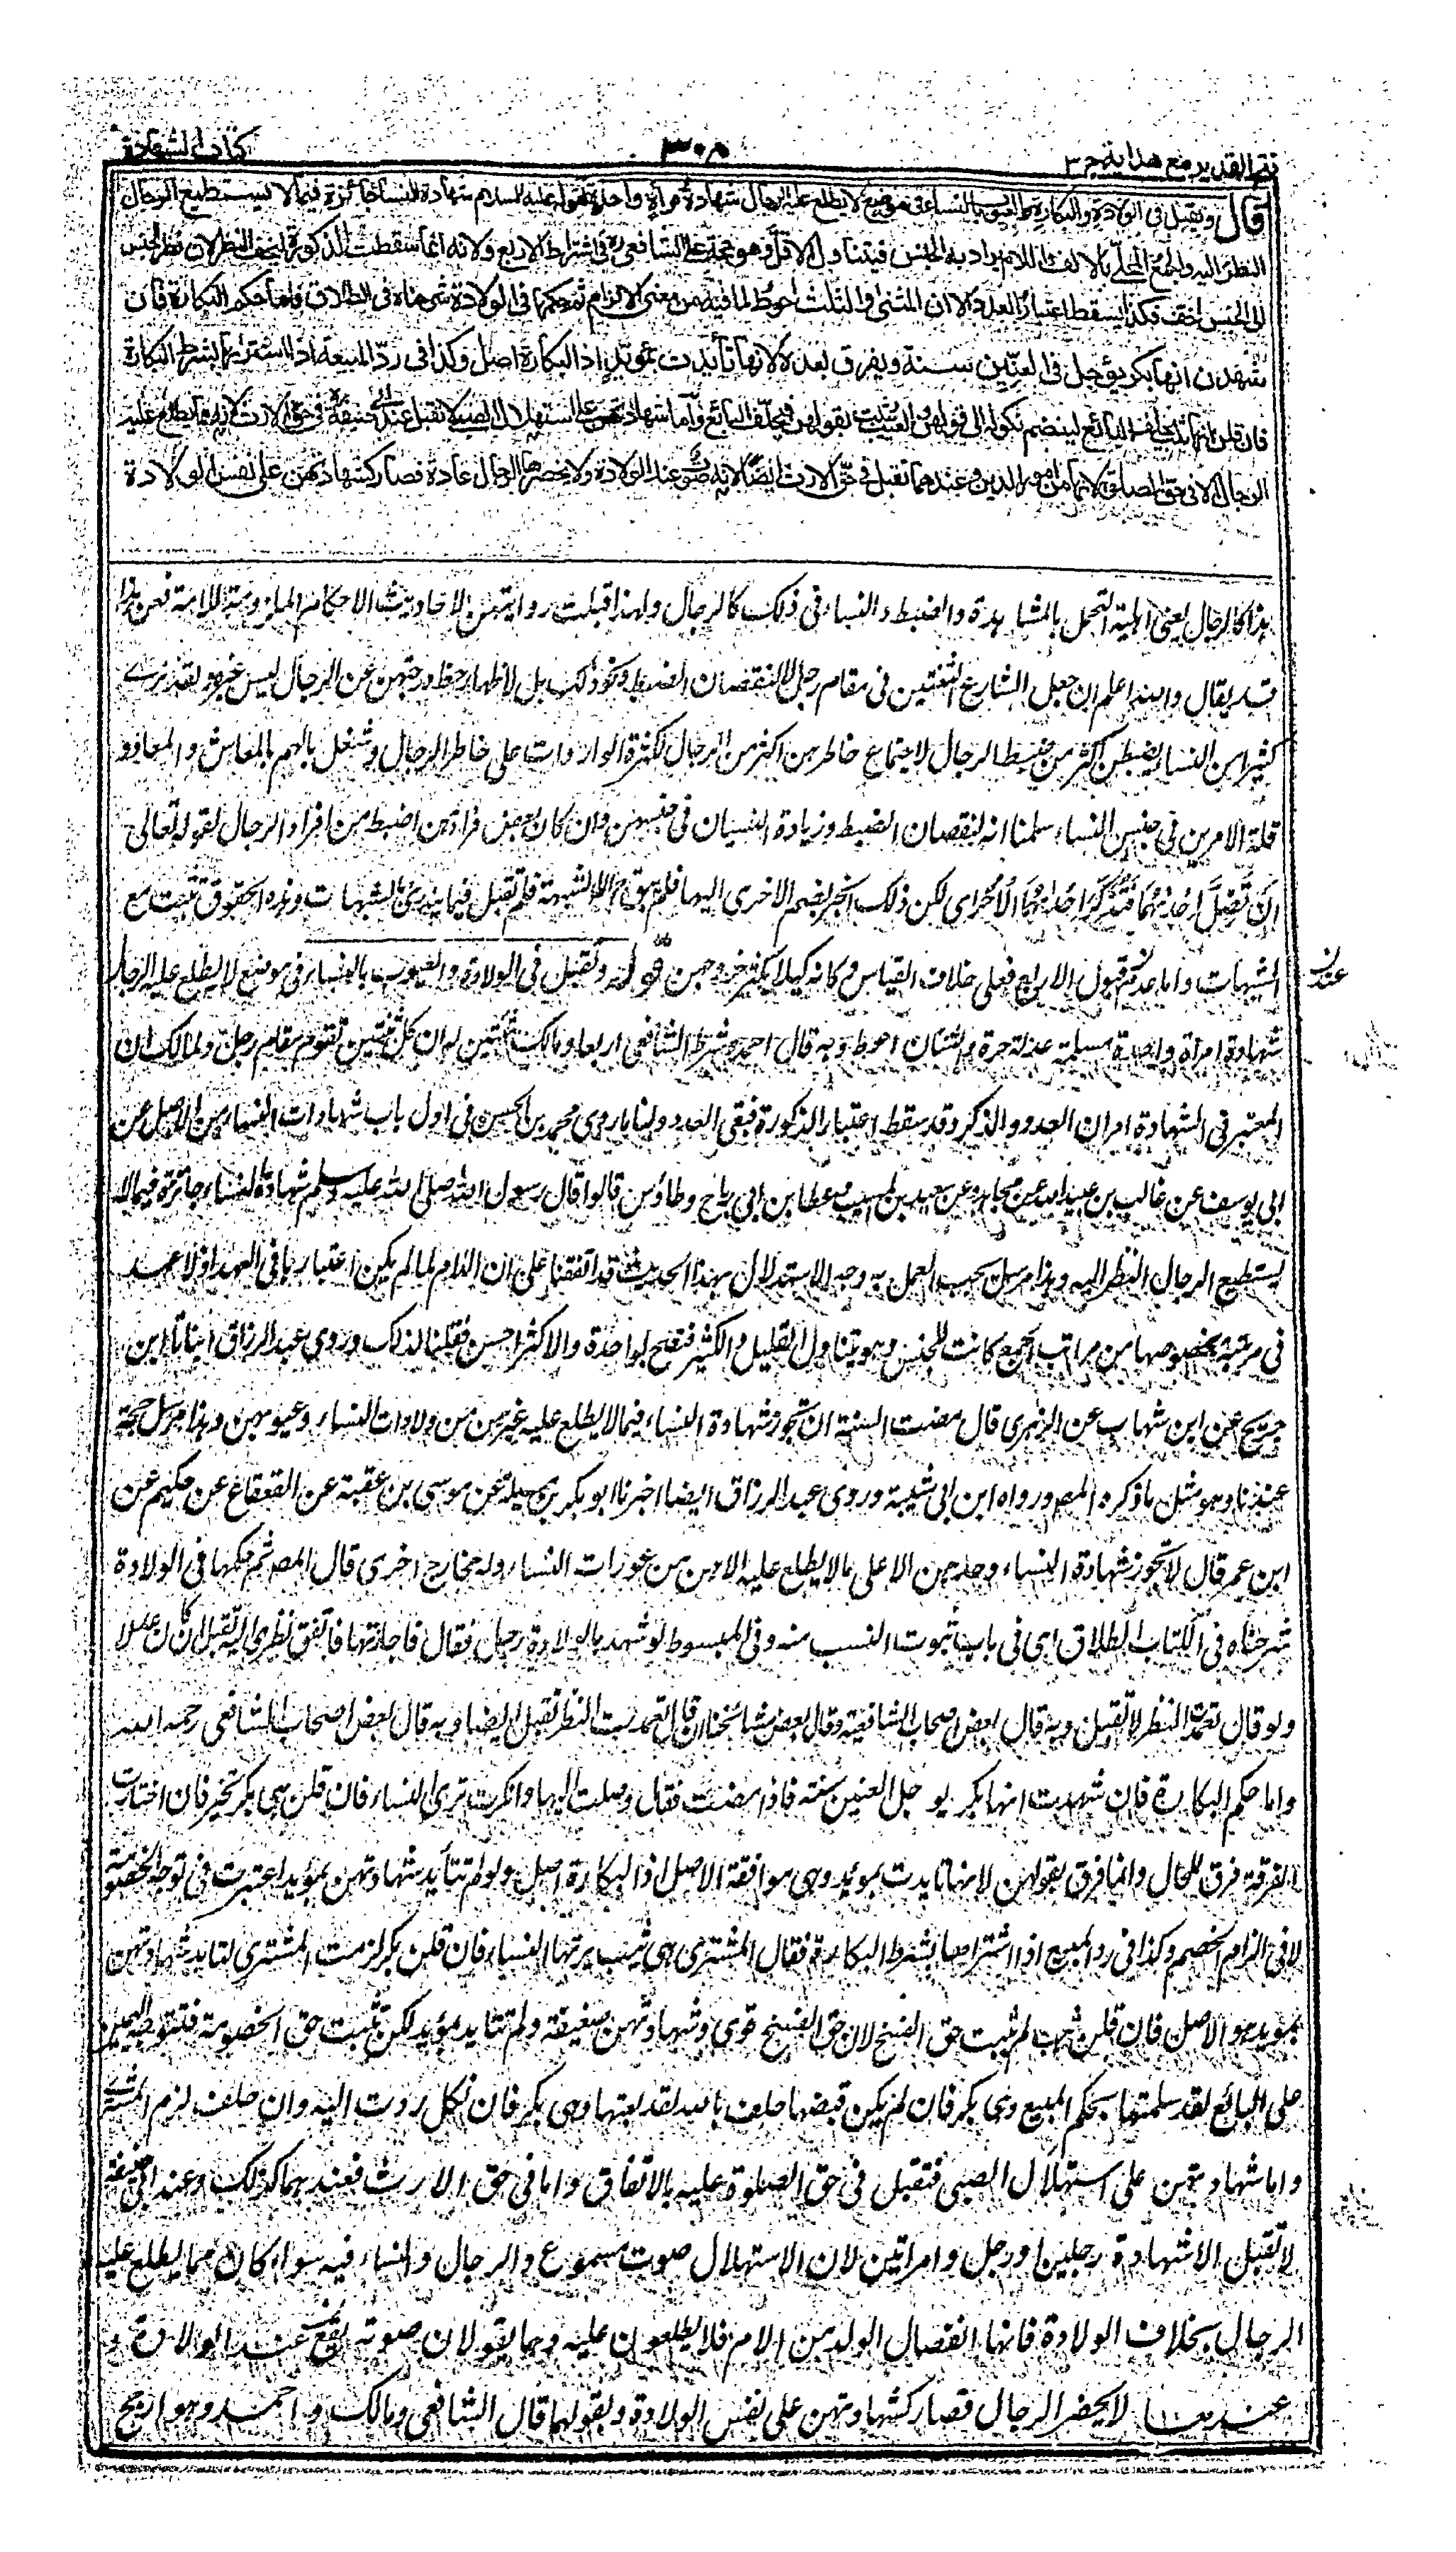 فتح القدير مع هداية ج ٣
٣٠٨
كتاب الشهادة
قال وتقبل فى الولادة والبكارة والعيوب بالنساء فى موضع لا يطلع عليه الرجال شهادة امرأة واحدة لقوله عليه السلام شهادة النساء جائزة فيما لا يستطيع الرجال
النظر اليه والجمع المحلى بالالف واللام يراد به الجنس فيتناول الاقل وهو حجة على الشافعى ره فى اشتراط الاربع ولانه انما سقطت الذكورة ليخف النظر لان نظر الجنس
الى الجنس اخف فكذا يسقط اعتبار العدد الا ان المثنى والثلث احوط لما فيه من معنى الالزام ثم حكمها فى الولادة شرحناه فى الطلاق واما حكم البكارة فان
شهدن انها بكر يؤجل فى العنين سنة ويفرق بعدها لانها تأيدت بمؤيد اذ البكارة اصل وكذا فى رد المبيعة اذا اشتراها بشرط البكارة
فان قلن انها ثيب يحلف البائع لينضم نكوله الى قولهن والعيب يثبت بقولهن فيحلف البائع واما شهادتهن على استهلال الصبى لا تقبل عند ابى حنيفة ره فى حق الارث لانه مما يطلع عليه
الرجال الا فى حق الصلوة لانها من امور الدين وعندهما تقبل فى حق الارث ايضا لانه صوت عند الولادة ولا يحضرها الرجال عادة فصار كشهادتهن على نفس الولادة
هذا كالرجال يعنى اهلية التحمل بالمشاهدة والضبط والنساء فى ذلك كالرجال ولهذا قبلت روايتهن لاحاديث الاحكام الملزومة للامة فعن هذا
قد يقال والله اعلم ان جعل الشارع الثنتين فى مقام رجل لا لنقصان الضبط ونحو ذلك بل لاظهار حظ درجتهن عن الرجال ليس غير ولقد نرى
كثيرا من النساء يضبطن اكثر من ضبط الرجال لاجتماع خاطرهن اكثر من الرجال لكثرة الواردات على خاطر الرجال وشغل بالهم بالمعاش والمعاد و
قلة الامرين فى جنس النساء سلمنا انه لنقصان الضبط وزيادة النسيان فى جنسهن وان كان بعض افرادهن اضبط من افراد الرجال لقوله تعالى
ان تضل احدهما فتذكر احداهما الاخرى لكن ذلك انجبر بضم الاخرى اليها فلم يبق الا الشبهة فلم تقبل فيما يندرئ بالشبهات وهذه الحقوق تثبت مع
الشبهات واما عدم قبول الاربع فعلى خلاف القياس وكانه كيلا يكثر خروجهن قوله وتقبل فى الولادة والعيوب بالنساء فى موضع لا يطلع عليه الرجال
شهادة امرأة واحدة مسلمة عدلة حرة والثنتان احوط وبه قال احمد وشرط الشافعى اربعا ومالك ثنتين له ان كل ثنتين تقوم مقام رجل ولمالك ان
المعتبر فى الشهادة امران العدد والذكر وقد سقط اعتبار الذكورة فبقى العدد ولنا ما روى محمد بن الحسن فى اول باب شهادات النساء من الاصل عن
ابى يوسف عن غالب بن عبيد الله عن مجاهد وعن سعيد بن المسيب وعطا بن ابى رباح وطاؤس قالوا قال رسول الله صلى الله عليه وسلم شهادة النساء جائزة فيما لا
يستطيع الرجال النظر اليه وهذا مرسل يجب العمل به وجه الاستدلال بهذا الحديث قد اتفقنا على ان اللام لما لم يكن اعتبارها فى العهد اذ لا عهد
فى مرتبة بخصوصها من مراتب الجمع كانت للجنس وهو يتناول القليل والكثير فتصح بواحدة والاكثر احسن فقلنا لذلك وروى عبد الرزاق انبانا ابن
جريج عن ابن شهاب عن الزهرى قال مضت السنة ان تجوز شهادة النساء فيما لا يطلع عليه غيرهن من ولادات النساء وعيوبهن وهذا مرسل حجة
عندنا وهو مثل ما ذكره المصـ ورواه ابن ابى شيبة وروى عبد الرزاق ايضا اخبرنا ابو بكر بن عن موسى بن عقبة عن القعقاع عن حكيم عن
ابن عمر قال لا تجوز شهادة النساء وحدهن الا على ما لا يطلع عليه الا هن من عورات النساء وله مخارج اخرى قال المصـ ثم حكمها فى الولادة
شرحناه فى الكتاب الطلاق اى فى باب ثبوت النسب منه وفى المبسوط لو شهد بالولادة رجل فقال فاجأتها فاتفق نظرى اليها تقبل ان كان عدلا
ولو قال تعمدت النظر لا تقبل وبه قال بعض اصحاب الشافعية وقال بعض مشائخنا ان قال تعمدت النظر تقبل ايضا وبه قال بعض اصحاب الشافعى رحمه الله
واما حكم البكارة فان شهدت انها بكر يوجل العنين سنة فاذا مضت فقال وصلت اليها وانكرت ترى النساء فان قلن هى بكر تخير فان اختارت
الفرقة فرق للحال وانما فرق بقولهن لانها تايدت بمويد وهى موافقة الاصل اذ البكارة اصل ولو لم تتأيد شهادتهن بمؤيد اعتبرت فى توجه الخصومة
لا فى الزام الخصم وكذا فى رد المبيع اذا اشتراها بشرط البكارة فقال المشترى هى ثيب يرتها النساء فان قلن بكر لزمت المشترى لتايد شهادتهن
بمويد هو الاصل فان قلن ثيب لم يثبت حق الفسخ لان حق الفسخ قوى وشهادتهن ضعيفة ولم تتايد بمؤيد لكن تثبت حق الخصومة فتتوجه اليمين
على البائع لقد سلمتها بحكم المبيع وهى بكر فان لم يكن قبضها حلف بالله لقد بعتها وهى بكر فان نكل ردت اليه وان حلف لزم المشترى
واما شهادتهن على استهلال الصبى فتقبل فى حق الصلوة عليه بالاتفاق واما فى حق الارث فعندهما كذلك وعند ابى حنيفة
لا تقبل الا شهادة رجلين او رجل وامراتين لان الاستهلال صوت مسموع والرجال والنساء فيه سواء كان مما يطلع عليه
الرجال بخلاف الولادة فانها انفصال الولد من الام فلا يطلعون عليه وهما يقولان صوته يقع عند الولادة و
عندها لا يحضر الرجال فصار كشهادتهن على نفس الولادة وبقولهما قال الشافعى ومالك و احمد وهو ارجح